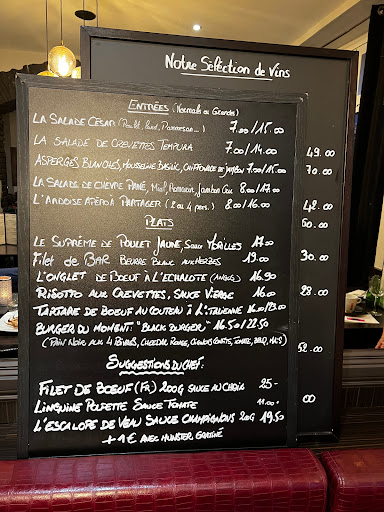 Notre Sélèction de Vins
ENTRÉES (Normale ou Grande)
LA SALADE CESAR (Poulet, lard, Parmesan...) 7.00/15.00
LA SALADE DE CREVETTES TEMPURA 7.00/14.00
ASPERGES BLANCHES, MOUSSELINE BASILIC, CHIFFONNADE DE JAMBON 7.00/15.00
LA SALADE DE CHEVRE PANÉ, Miel, Jambon Cru 8.00/17.00
L'ARDOISE APÉRO A PARTAGER (2 ou 4 pers.) 8.00/16.00
PLATS
LE SUPRÊME DE POULET JAUNE, SAUCE MORILLES 17.00
FILET DE BAR BEURRE BLANC AUX HERBES 19.00
L'ONGLET DE BOEUF À L'ECHALOTE (ANGUS) 16.90
RISOTTO AUX CREVETTES, SAUCE VIERGE 16.00
TARTARE DE BOEUF AU COUTEAU À L'ITALIENNE 16.00/23.00
BURGER DU MOMENT "BLACK BURGER" 16.50/22.50
(PAIN NOIR AUX 4 POIVRES, CHEDDAR ROUGE, OIGNONS CONFITS, TOMATE, BBQ)
SUGGESTIONS DU CHEF:
FILET DE BOEUF (FR) 200G SAUCE AU CHOIX 25-
LINGUINE POLPETTE SAUCE TOMATE 11.00
L'ESCALOPE DE VEAU SAUCE CHAMPIGNONS 19.50
+ 1€ AVEC MUNSTER GRATINÉ
49.00
70.00
48.00
60.00
30.00
28.00
52.00
00